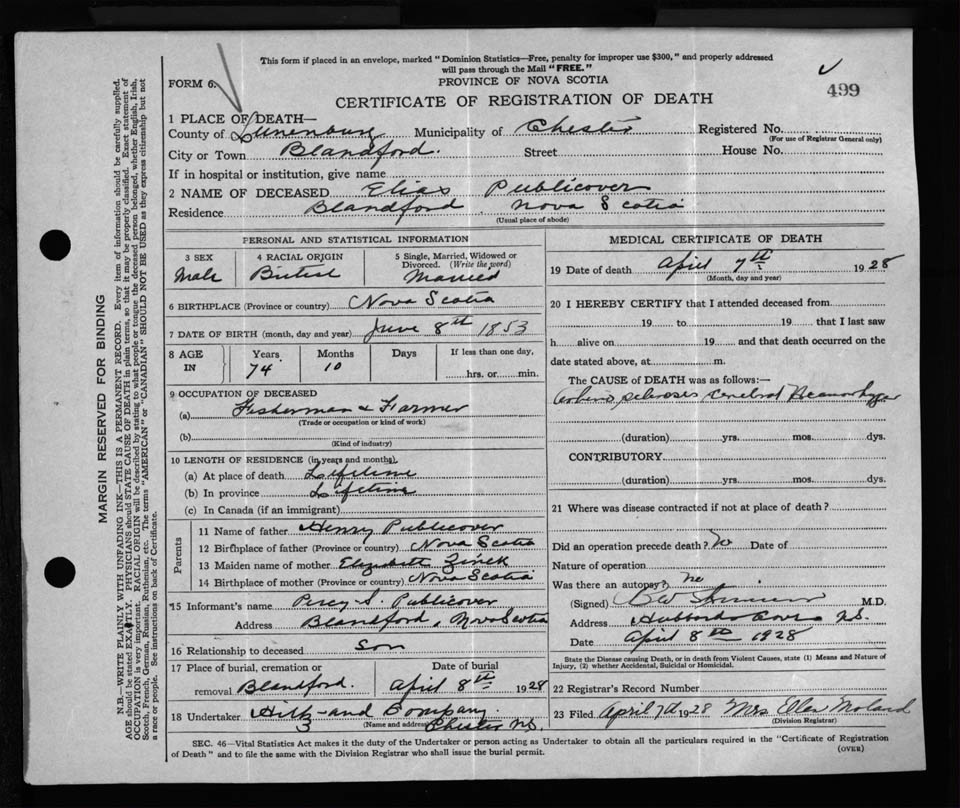 This form if placed in an envelope, marked "Dominion Statistics—Free, penalty for improper use $300," and properly addressed
will pass through the Mail "FREE."
FORM 6.
PROVINCE OF NOVA SCOTIA
499
CERTIFICATE OF REGISTRATION OF DEATH
1 PLACE OF DEATH—
County of Lunenburg Municipality of Chester Registered No.
(For use of Registrar General only)
City or Town Blandford. Street House No.
If in hospital or institution, give name
2 NAME OF DECEASED Elias Publicover
Residence Blandford, Nova Scotia
(Usual place of abode)
PERSONAL AND STATISTICAL INFORMATION
3 SEX 4 RACIAL ORIGIN 5 Single, Married, Widowed or
Divorced. (Write the word)
Male British Married
6 BIRTHPLACE (Province or country) Nova Scotia
7 DATE OF BIRTH (month, day and year) June 8th 1853
8 AGE IN Years Months Days If less than one day,
74 10 hrs. or min.
9 OCCUPATION OF DECEASED
(a) Fisherman & Farmer
(Trade or occupation or kind of work)
(b)
(Kind of industry)
10 LENGTH OF RESIDENCE (in years and months).
(a) At place of death Lifetime
(b) In province Lifetime
(c) In Canada (if an immigrant)
Parents
11 Name of father Henry Publicover
12 Birthplace of father (Province or country) Nova Scotia
13 Maiden name of mother Elizabeth Zinck
14 Birthplace of mother (Province or country) Nova Scotia
15 Informant's name Percy S. Publicover
Address Blandford, Nova Scotia
16 Relationship to deceased son
17 Place of burial, cremation or Date of burial
removal Blandford. April 8th 1928
18 Undertaker and Company
(Name and address) Chester N.S.
MEDICAL CERTIFICATE OF DEATH
19 Date of death April 7th 1928
(Month, day and year)
20 I HEREBY CERTIFY that I attended deceased from
19 to 19 that I last saw
h alive on 19 and that death occurred on the
date stated above, at m.
The CAUSE of DEATH was as follows:—
sclerosis Cerebral Heamorhage
(duration) yrs. mos. dys.
CONTRIBUTORY
(duration) yrs. mos. dys.
21 Where was disease contracted if not at place of death?
Did an operation precede death? No Date of
Nature of operation
Was there an autopsy? no
(Signed) M.D.
Address Hubbards Cove N.S.
Date April 8th 1928
State the Disease causing Death, or in death from Violent Causes, state (1) Means and Nature of
Injury, (2) whether Accidental, Suicidal or Homicidal.
22 Registrar's Record Number
23 Filed April 7th 1928 Mrs Ellen
(Division Registrar)
SEC. 46—Vital Statistics Act makes it the duty of the Undertaker or person acting as Undertaker to obtain all the particulars required in the "Certificate of Registration
of Death" and to file the same with the Division Registrar who shall issue the burial permit.
(OVER)
MARGIN RESERVED FOR BINDING
N.B.—WRITE PLAINLY WITH UNFADING INK—THIS IS A PERMANENT RECORD. Every item of information should be carefully supplied.
AGE should be stated EXACTLY. PHYSICIANS should STATE CAUSE OF DEATH in plain terms, so that it may be properly classified. Exact statement of
OCCUPATION is very important. RACIAL ORIGIN will be described by stating to what people or tongue the deceased person belonged, whether English, Irish,
Scotch, French, German, Russian, Ruthenian, etc. The terms "AMERICAN" or "CANADIAN" SHOULD NOT BE USED as they express citizenship but not
a race or people. See instructions on back of Certificate.